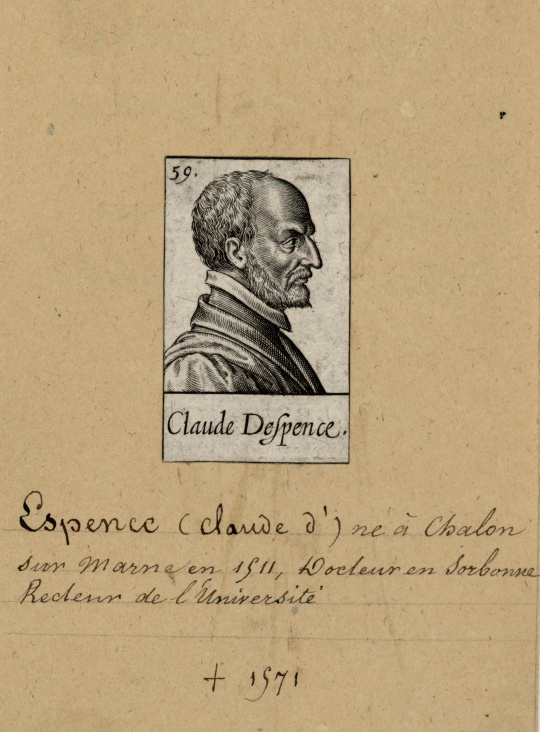 59.
Claude Deſpence.
Espence (Claude d') né à Chalon
sur Marne en 1511, Docteur en Sorbonne
Recteur de l'Université
+ 1571